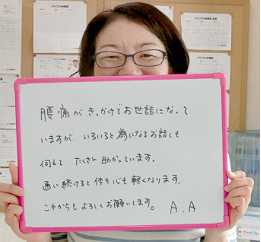 腰痛がきっかけでお世話になって
いますが、いろいろと為になるお話しも
伺えて たくさん 助かっています。
通い続けると体も心も軽くなります。
これからもよろしくお願いします。 A.A